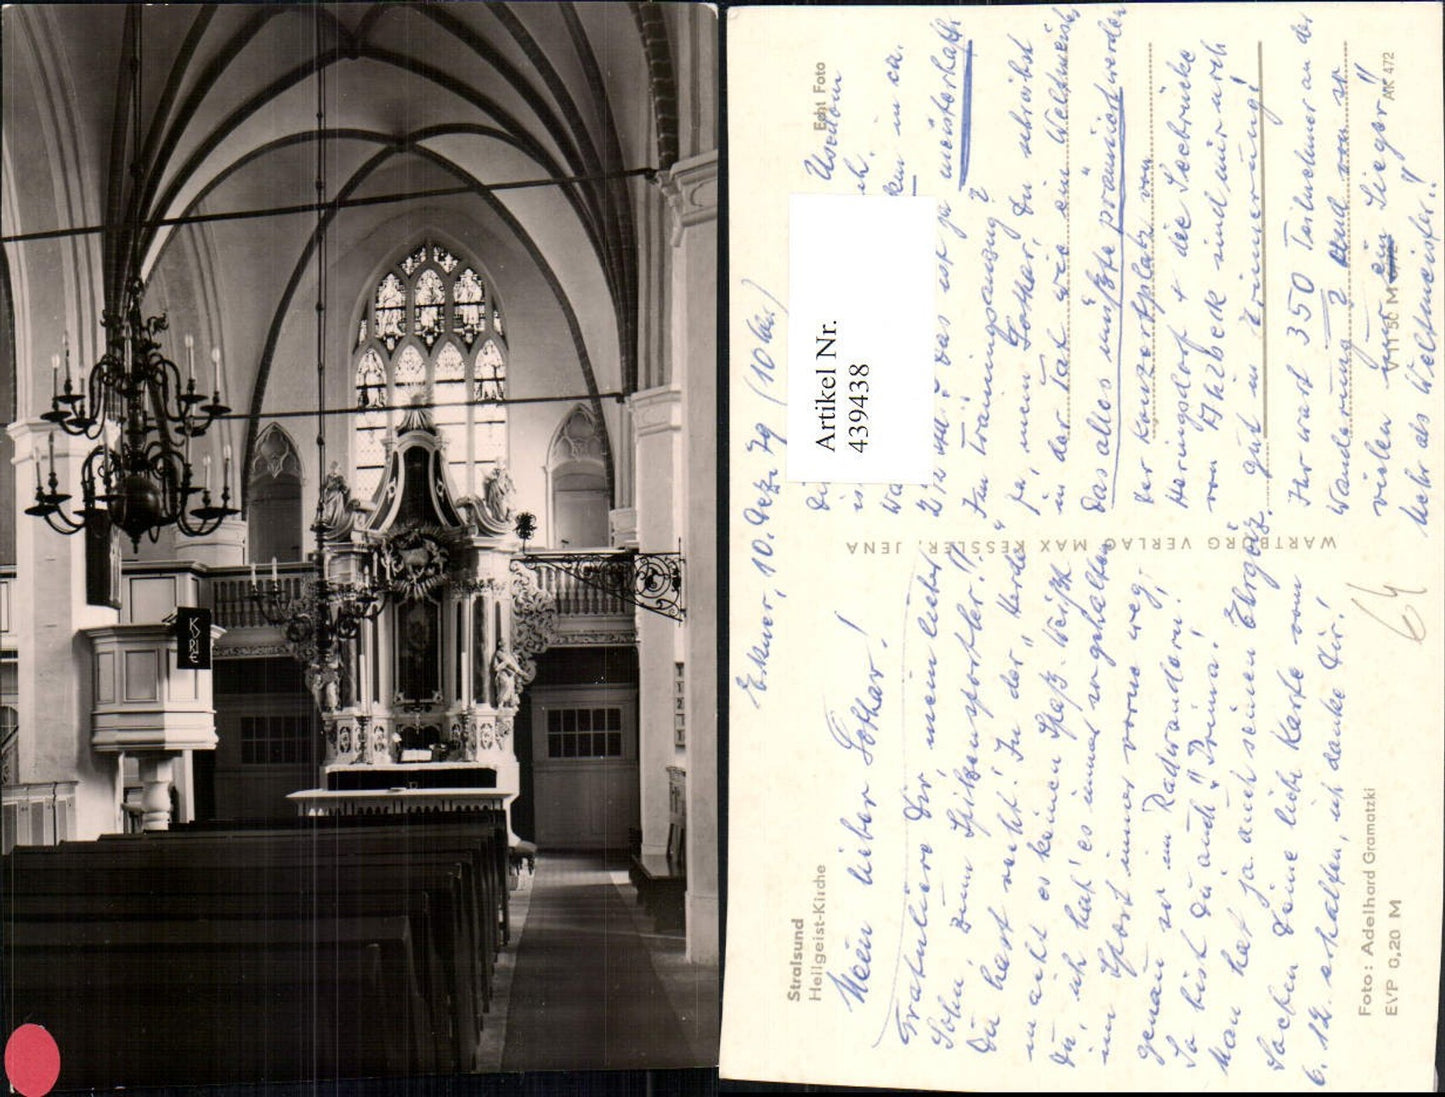 KYRIE
Stralsund
Heilgeist-Kirche
Erkner, 10. Dez. 79 (10 Uhr)
Mein lieber Lothar!
Gratuliere Dir mein lieber
Sohn zum Spitzensportler!!
Du hast recht! In der "Herde"
macht es keinen Spaß. Weißt
Du, ich hab' es immer so gehalten
im Sport immer vorne weg,
genau so im Radwandern!
So bist Du auch! "Prima"!
Man hat ja auch seinen Ehrgeiz.
Lieben Deine liebe Karte vom
6. 12. erhalten, ich danke Dir!
Foto: Adelhard Gramatzki
EVP 0,20 M
WARTBURG VERLAG MAX KESSLER, JENA
Artikel Nr.
439438
Echt Foto
Usedom
in ca.
2½ das ist ja meisterhaft
Im Trainingsanzug?
Ja, mein Lothar, Du schriebst
in der Tat wie ein Weltmeister
das alles müßte prämiiert werden
Der Konzertplatz von
Heringsdorf + die Seebrücke
von Ahlbeck sind mir noch
gut in Erinnerung!
Ihr wart 350 Teilnehmer an der
Wanderung? und von so
vielen ein Sieger!!
Mehr als Weltmeister!!
V 11 50 M
AK 472
64